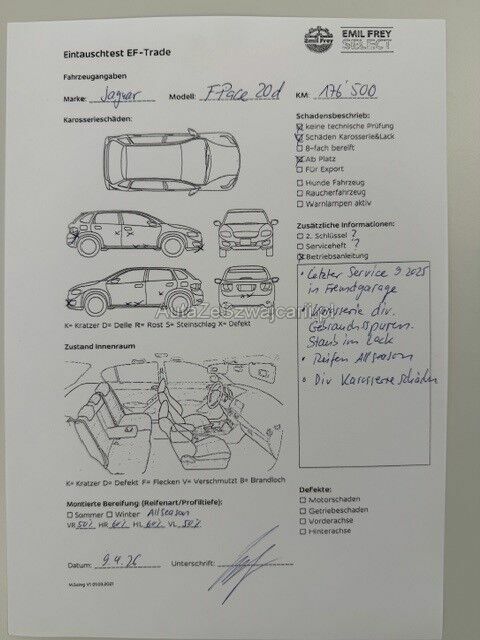 Emil Frey
EMIL FREY
SELECT
Eintauschtest EF-Trade
Fahrzeugangaben
Marke: Jaguar Modell: F-Pace 20d KM: 176'500
Karosserieschäden:
Schadensbeschrieb:
keine technische Prüfung
Schäden Karosserie&Lack
8-fach bereift
Ab Platz
Für Export
Hunde Fahrzeug
Raucherfahrzeug
Warnlampen aktiv
Zusätzliche Informationen:
2. Schlüssel ?
Serviceheft ?
Betriebsanleitung
• Letzter Service 9.2025
in Fremdgarage
• Karosserie div.
Gebrauchsspuren.
Staub im Lack
• Reifen Allseason
• Div Karosserieschäden
K= Kratzer D= Delle R= Rost S= Steinschlag X= Defekt
Zustand Innenraum
K= Kratzer D= Defekt F= Flecken V= Verschmutzt B= Brandloch
Montierte Bereifung (Reifenart/Profiltiefe):
Sommer Winter Allseason
VR 50% HR 60% HL 60% VL 50%
Defekte:
Motorschaden
Getriebeschaden
Vorderachse
Hinterachse
Datum: 9.4.26 Unterschrift: